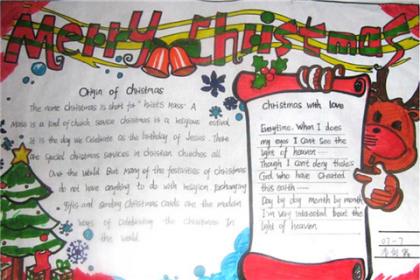 Merry Christmas
Origin of Christmas
The name Christmas is short for "Christ's Mass" A
Mass is a kind of church service christmas is a religious festival
it is the day we celebrate as the birthday of Jesus. There
are special christmas services in christian churches all
Over the world. But many of the festivities of christmas
do not have anything to do with religion. Exchanging
gifts and sending Christmas cards are the modern
ways of celebrating the Christmas in
the world.
christmas with love
Everytime. When I does
my eyes I can't see the
light of heaven
Though I can't deny thate's
God who have charted
this earth
Day by day month by month
I'm very interested bout the
light of heaven